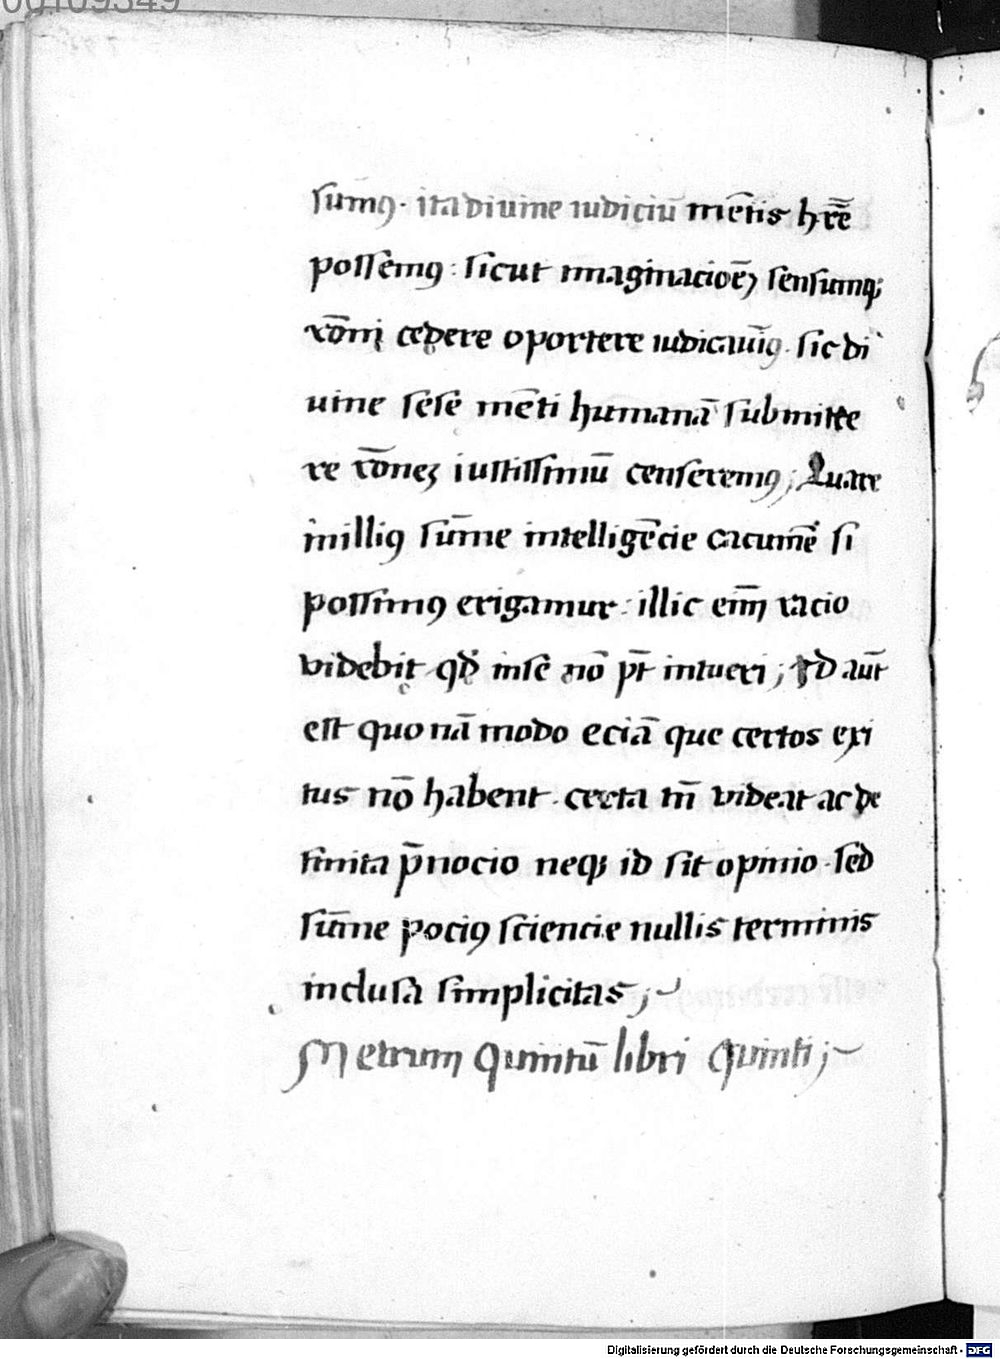 00109349
sum9 · ita diuine iudiciū mētis hr̄ē
possem9 : sicut imaginacioēꝫ sensumqꝫ
rōni cedere oportere iudicauim9 · sic di
uine sese mēti humanā submitte
re rōneꝫ iustissimū censerem9 ; Quare
in illi9 sūme intelligēcie cacumē si
possim9 erigamur : illic enī racio
videbit qđ in se nō pt̄ intueri ; Id aūt
est quo nā modo eciā que certos exi
tus nō habent · certa tn̄ videat ac de
finita p̄nocio neqꝫ id sit opinio · sed
sūme poci9 sciencie nullis terminis
inclusa simplicitas ;
Metrum Quintū libri Quinti ;
Digitalisierung gefördert durch die Deutsche Forschungsgemeinschaft - DFG